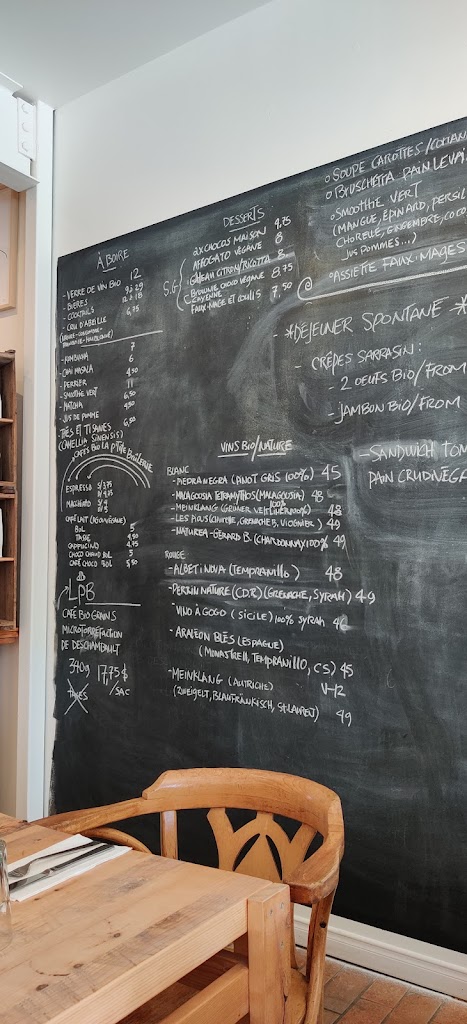 À BOIRE
- VERRE DE VIN BIO 12
- BIÈRES
- COCKTAILS
- CRU D'ABEILLE 6,75
- KOMBUCHA 7
- CHAI MASALA 6
- PERRIER
- SMOOTHIE VERT
- MATCHA
- JUS DE POMME
- THÉS ET TISANES 6,50
(CAMELLIA SINENSIS)
CAFÉS BIO LA P'TITE BRÛLERIE
ESPRESSO S/ 3,75
MACCHIATO
CAFÉ LAIT
BOL 5
TASSE 4,50
CAPPUCCINO 4,75
CHOCO CHAUD BOL 5
CAFÉ CHOCO BOL 5,50
LPB
CAFÉ BIO GRAINS
MICROTORRÉFACTION
DE DESCHAMBAULT
340g 17,75 $
/SAC
TAXES
DESSERTS
2X CHOCOS MAISON 4,75
AFFOGATO VÉGANE 8
S.G GÂTEAU CITRON/RICOTTA 8
BROWNIE CHOCO VÉGANE 8,75
CAYENNE
FAUX-MAGE ET COULIS 7,50
VINS BIO/NATURE
BLANC
- PIEDRA NEGRA (PINOT GRIS 100%) 45
- MALAGOUSIA TETRAMYTHOS (MALAGOUSIA) 48
- MEINKLANG (GRÜNER VELTLINER 100%) 48
- LES PIOUS 49
- NATUREA-GÉRARD B. (CHARDONNAY 100% 49
ROUGE
- ALBET I NOYA (TEMPRANILLO) 48
- PERRIN NATURE (C.D.R) (GRENACHE, SYRAH) 49
- VINO À GOGO (SICILE) 100% SYRAH
- ARALEÓN BLÉS (ESPAGNE)
(MONASTRELL, TEMPRANILLO, CS) 45
- MEINKLANG (AUTRICHE) V-12
(ZWEIGELT, BLAUFRÄNKISCH, ST-LAURENT) 49
o SOUPE CAROTTES/
o BRUSCHETTA PAIN LEVAI
o SMOOTHIE VERT
(MANGUE, ÉPINARD, PERSIL
GINGEMBRE, COCO
JUS POMMES...)
o ASSIETTE FAUX-MAGES
- *DÉJEUNER SPONTANÉ *
- CRÊPES SARRASIN :
- 2 OEUFS BIO/FROM
- JAMBON BIO/FROM
- SANDWICH TOM
PAIN CRUDIVÉGA